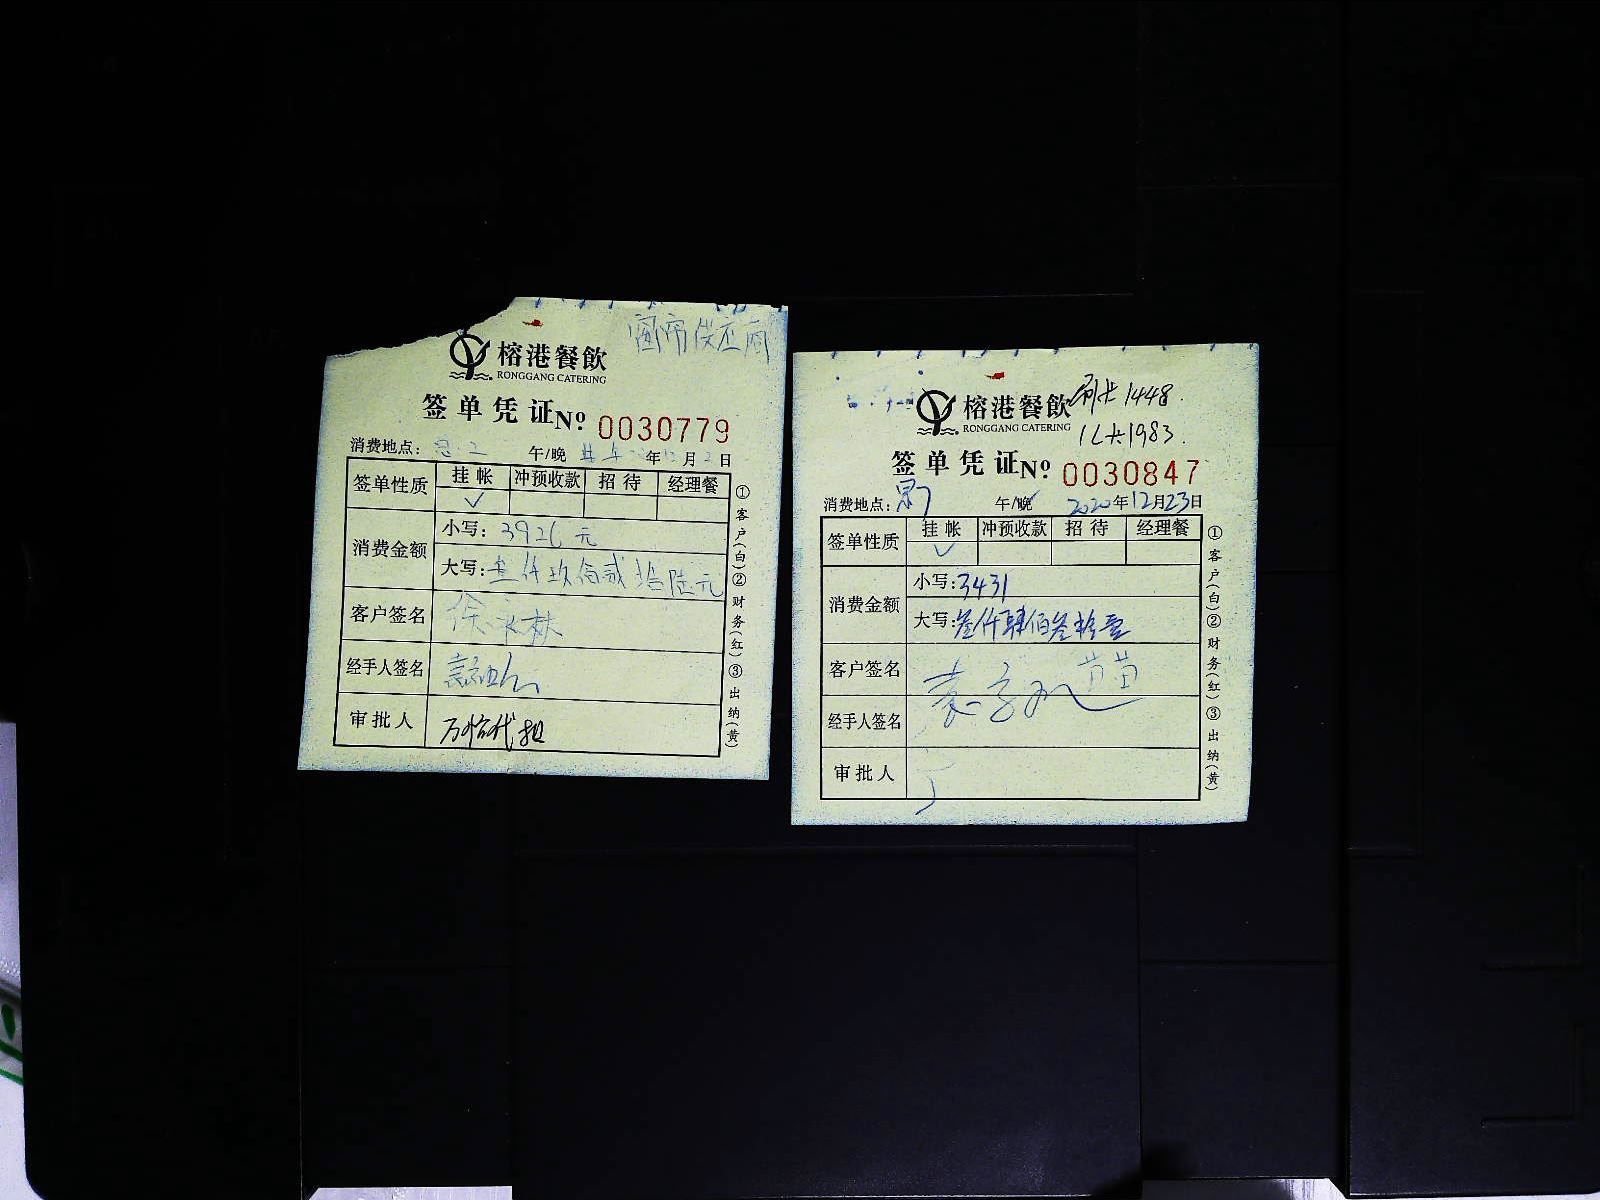 窗帘供应商
榕港餐飲
RONGGANG CATERING
签单凭证 Nº 0030779
消费地点： 午/晚 年12月2日
签单性质 挂帐 冲预收款 招待 经理餐
✓
消费金额 小写：3926元
大写：叁仟玖佰贰拾陆元
客户签名 徐永林
经手人签名
审批人 代担
①客户(白)②财务(红)③出纳(黄)
榕港餐飲 刷卡1448.
RONGGANG CATERING 1983.
签单凭证 Nº 0030847
消费地点： 午/晚 2020年12月23日
签单性质 挂帐 冲预收款 招待 经理餐
✓
消费金额 小写：3431
大写：叁仟肆佰叁拾壹
客户签名 苗苗
经手人签名
审批人
①客户(白)②财务(红)③出纳(黄)